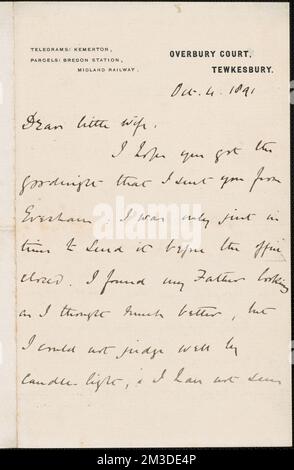 TELEGRAMS: KEMERTON,
PARCELS: BREDON STATION,
MIDLAND RAILWAY.
OVERBURY COURT,
TEWKESBURY.
Oct. 4. 1891
Dear little wife.
I hope you got the
goodnight that I sent you from
Evesham. I was only just in
time to send it before the office
closed. I found my Father looking
as I thought much better, but
I could not judge well by
candle light, & I have not seen
alamy
Image ID: 2M3DE4P
www.alamy.com